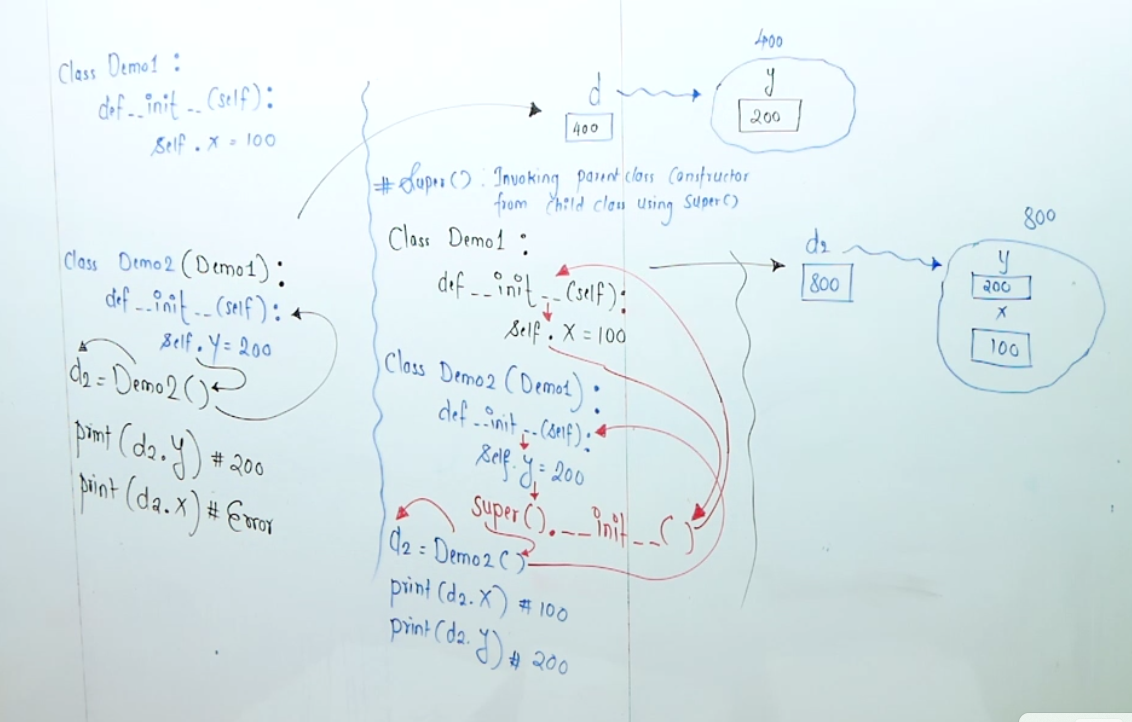 Class Demo1 :
def __init__(self):
self.x = 100
Class Demo2(Demo1):
def __init__(self):
self.y = 200
d2 = Demo2()
print(d2.y) # 200
print(d2.x) # Error
400
d
400
y
200
# Super() : Invoking parent class Constructor
from Child class using Super()
Class Demo1 :
def __init__(self):
self.x = 100
Class Demo2(Demo1):
def __init__(self):
self.y = 200
super().__init__()
d2 = Demo2()
print(d2.x) # 100
print(d2.y) # 200
800
d2
800
y
200
x
100